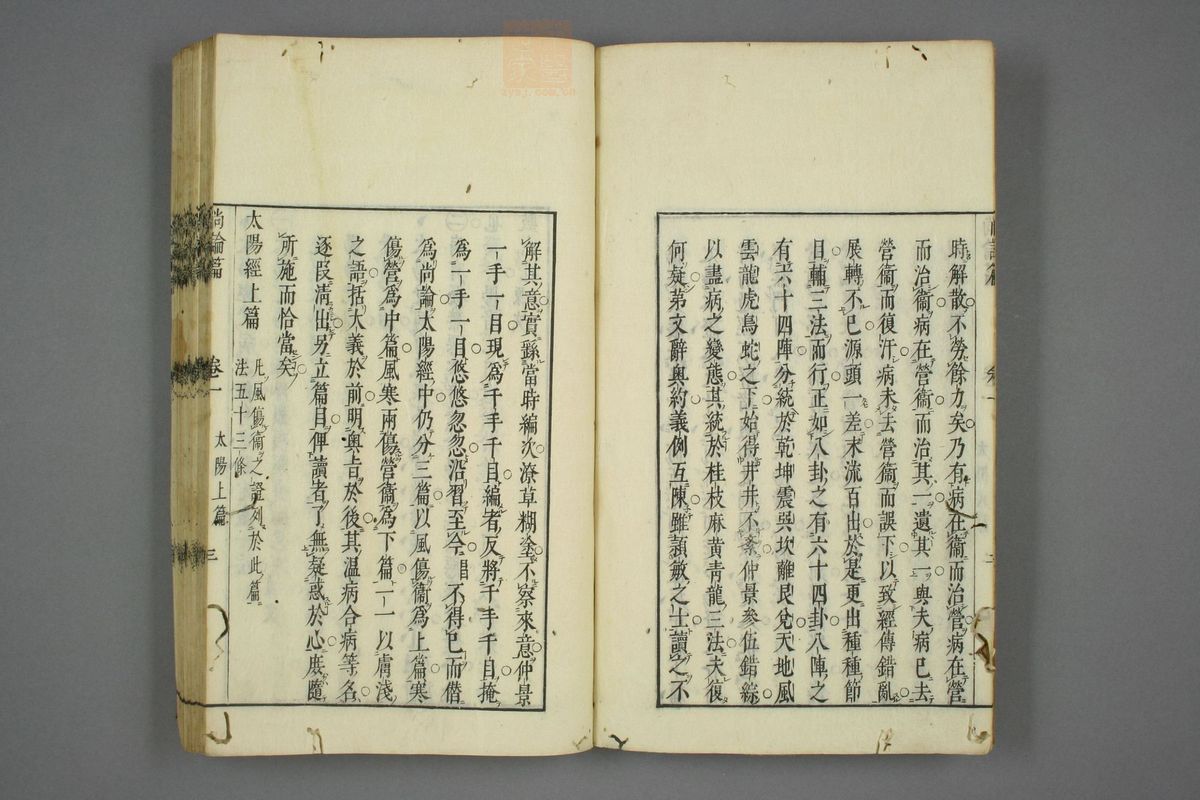 時解散不勞餘力矣乃有病在衞而治營病在營
而治衞病在營衞而治其一遺其一與夫病已去
營衞而復汗病未去營衞而誤下以致經傳錯亂
展轉不已源頭一差末流百出於是更出種種節
目輔三法而行正如八卦之有六十四卦八陣之
有六十四陣分統於乾坤震巽坎離艮兌天地風
雲龍虎鳥蛇之下始得井井不紊仲景參伍錯綜
以盡病之變態其統於桂枝麻黃青龍三法夫復
何疑第文辭奧約義例互陳雖頴敏之士讀之不
解其意實繇當時編次潦草糊塗不察來意仲景
一手一目現為千手千目編者反將千手千目掩
為一手一目悠悠忽忽沿習至今不得已而僭
為尚論太陽經中仍分三篇以風傷衞為上篇寒
傷營為中篇風寒兩傷營衞為下篇一一以膚淺
之語括大義於前明奧旨於後其温病合病等名
逐叚清出另立篇目俾讀者了無疑惑於心庶隨
所施而恰當矣
太陽經上篇
凡風傷衞之證列於此篇
法五十三條
尚論篇 卷一 太陽上篇 三